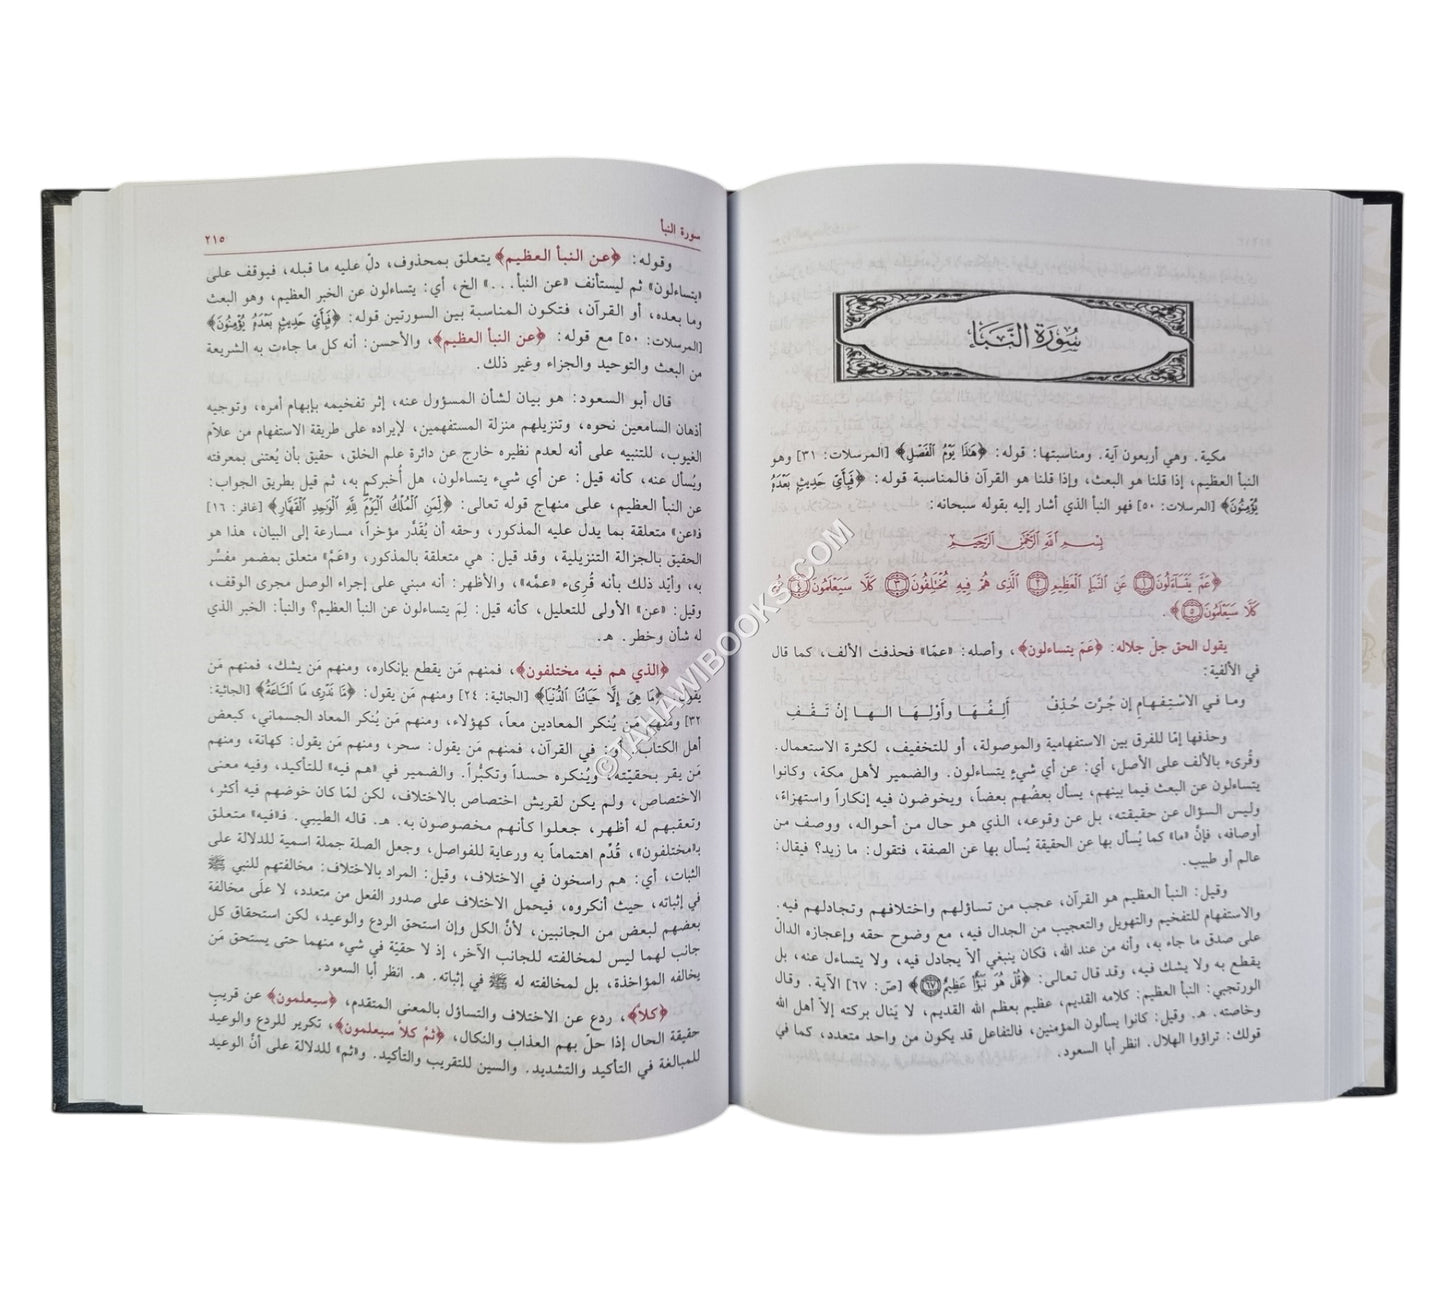 سُورَةُ النَّبَإِ
مكية. وهي أربعون آية. ومناسبتها: قوله: ﴿هَذَا يَوْمُ الْفَصْلِ﴾ [المرسلات: ٣١] وهو
النبأ العظيم، إذا قلنا هو البعث، وإذا قلنا هو القرآن فالمناسبة قوله: ﴿فَبِأَيِّ حَدِيثٍ بَعْدَهُ
يُؤْمِنُونَ﴾ [المرسلات: ٥٠] فهو النبأ الذي أشار إليه بقوله سبحانه:
بِسْمِ اللَّهِ الرَّحْمَنِ الرَّحِيمِ
﴿عَمَّ يَتَسَاءَلُونَ ١ عَنِ النَّبَإِ الْعَظِيمِ ٢ الَّذِي هُمْ فِيهِ مُخْتَلِفُونَ ٣ كَلَّا سَيَعْلَمُونَ ٤ ثُمَّ
كَلَّا سَيَعْلَمُونَ ٥﴾.
يقول الحق جلّ جلاله: ﴿عَمّ يتساءلون﴾، وأصله: «عمّا» فحذفت الألف، كما قال
في الألفية:
وما في الاسْتِفهامِ إن جُرَّت حُذِفْ أَلِفُهَا وأَوْلِهَا الها إنْ تَقِفْ
وحذفها إمّا للفرق بين الاستفهامية والموصولة، أو للتخفيف، لكثرة الاستعمال.
وقُرىء بالألف على الأصل، أي: عن أي شيءٍ يتساءلون. والضمير لأهل مكة، وكانوا
يتساءلون عن البعث فيما بينهم، يسأل بعضُهم بعضاً، ويخوضون فيه إنكاراً واستهزاءً،
وليس السؤال عن حقيقته، بل عن وقوعه، الذي هو حال من أحواله، ووصف من
أوصافه، فإنَّ «ما» كما يُسأل بها عن الحقيقة يُسأل بها عن الصفة، فتقول: ما زيد؟ فيقال:
عالم أو طبيب.
وقيل: النبأ العظيم هو القرآن، عجب من تساؤلهم واختلافهم وتجادلهم فيه.
والاستفهام للتفخيم والتهويل والتعجيب من الجدال فيه، مع وضوح حقه وإعجازه الدالّ
على صدق ما جاء به، وأنه من عند الله، فكان ينبغي ألاّ يجادل فيه، ولا يتساءل عنه، بل
يقطع به ولا يشك فيه، وقد قال تعالى: ﴿قُلْ هُوَ نَبَؤٌا عَظِيمٌ ٦٧﴾ [صَ: ٦٧] الآية. وقال
الورتجبي: النبأ العظيم: كلامه القديم، عظيم بعظم الله القديم، لا يَنال بركته إلاَّ أهل الله
وخاصته. هـ. وقيل: كانوا يسألون المؤمنين، فالتفاعل قد يكون من واحد متعدد، كما في
قولك: تراؤوا الهلال. انظر أبا السعود.
سورة النبأ ٢١٥
وقوله: ﴿عن النبأ العظيم﴾ يتعلق بمحذوف، دلّ عليه ما قبله، فيوقف على
«يتساءلون» ثم ليستأنف «عن النبأ...» الخ، أي: يتساءلون عن الخبر العظيم، وهو البعث
وما بعده، أو القرآن، فتكون المناسبة بين السورتين قوله: ﴿فَبِأَيِّ حَدِيثٍ بَعْدَهُ يُؤْمِنُونَ﴾
[المرسلات: ٥٠] مع قوله: ﴿عن النبأ العظيم﴾، والأحسن: أنه كل ما جاءت به الشريعة
من البعث والتوحيد والجزاء وغير ذلك.
قال أبو السعود: هو بيان لشأن المسؤول عنه، إثر تفخيمه بإبهام أمره، وتوجيه
أذهان السامعين نحوه، وتنزيلهم منزلة المستفهمين، لإيراده على طريقة الاستفهام من علاّم
الغيوب، للتنبيه على أنه لعدم نظيره خارج عن دائرة علم الخلق، حقيق بأن يُعتنى بمعرفته
ويُسأل عنه، كأنه قيل: عن أي شيء يتساءلون، هل أُخبركم به، ثم قيل بطريق الجواب:
عن النبأ العظيم، على منهاج قوله تعالى: ﴿لِمَنِ الْمُلْكُ الْيَوْمَ لِلَّهِ الْوَاحِدِ الْقَهَّارِ﴾ [غافر: ١٦]
فـ«عن» متعلقة بما يدل عليه المذكور، وحقه أن يُقدَّر مؤخراً، مسارعة إلى البيان، هذا هو
الحقيق بالجزالة التنزيلية، وقد قيل: هي متعلقة بالمذكور، و«عَمَّ» متعلق بمضمر مفسَّر
به، وأيّد ذلك بأنه قُرىء «عمَّه»، والأظهر: أنه مبني على إجراء الوصل مجرى الوقف،
وقيل: «عن» الأولى للتعليل، كأنه قيل: لِمَ يتساءلون عن النبأ العظيم؟ والنبأ: الخبر الذي
له شأن وخطر. هـ.
﴿الذي هم فيه مختلفون﴾، فمنهم مَن يقطع بإنكاره، ومنهم مَن يشك، فمنهم مَن
يقول: ﴿مَا هِيَ إِلَّا حَيَاتُنَا الدُّنْيَا﴾ [الجاثية: ٢٤] ومنهم مَن يقول: ﴿مَا نَدْرِي مَا السَّاعَةُ﴾ [الجاثية:
٣٢] ومنهم مَن يُنكر المعادين معاً، كهؤلاء، ومنهم مَن يُنكر المعاد الجسماني، كبعض
أهل الكتاب. أو: في القرآن، فمنهم مَن يقول: سحر، ومنهم مَن يقول: كهانة، ومنهم
مَن يقر بحقيّته، ويُنكره حسداً وتكبُّراً. والضمير في «هم فيه» للتأكيد، وفيه معنى
الاختصاص، ولم يكن لقريش اختصاص بالاختلاف، لكن لمّا كان خوضهم فيه أكثر،
وتعقبهم له أظهر، جعلوا كأنهم مخصوصون به. هـ. قاله الطيبي. فـ«فيه» متعلق
بـ«مختلفون»، قُدِّم اهتماماً به ورعاية للفواصل، وجعل الصلة جملة اسمية للدلالة على
الثبات، أي: هم راسخون في الاختلاف، وقيل: المراد بالاختلاف: مخالفتهم للنبي ﷺ
في إثباته، حيث أنكروه، فيحمل الاختلاف على صدور الفعل من متعدد، لا على مخالفة
بعضهم لبعض من الجانبين، لأنَّ الكل وإن استحق الردع والوعيد، لكن استحقاق كل
جانب لهما ليس لمخالفته للجانب الآخر، إذ لا حقيّة في شيء منهما حتى يستحق مَن
يخالفه المؤاخذة، بل لمخالفته له ﷺ في إثباته. هـ. انظر أبا السعود.
﴿كلاَّ﴾، ردع عن الاختلاف والتساؤل بالمعنى المتقدم، ﴿سيعلمون﴾ عن قريبٍ
حقيقة الحال إذا حلّ بهم العذاب والنكال، ﴿ثمَّ كلاَّ سيعلمون﴾، تكرير للردع والوعيد
للمبالغة في التأكيد والتشديد. والسين للتقريب والتأكيد. و«ثم» للدلالة على أنَّ الوعيد
©TAHAWIBOOKS.COM